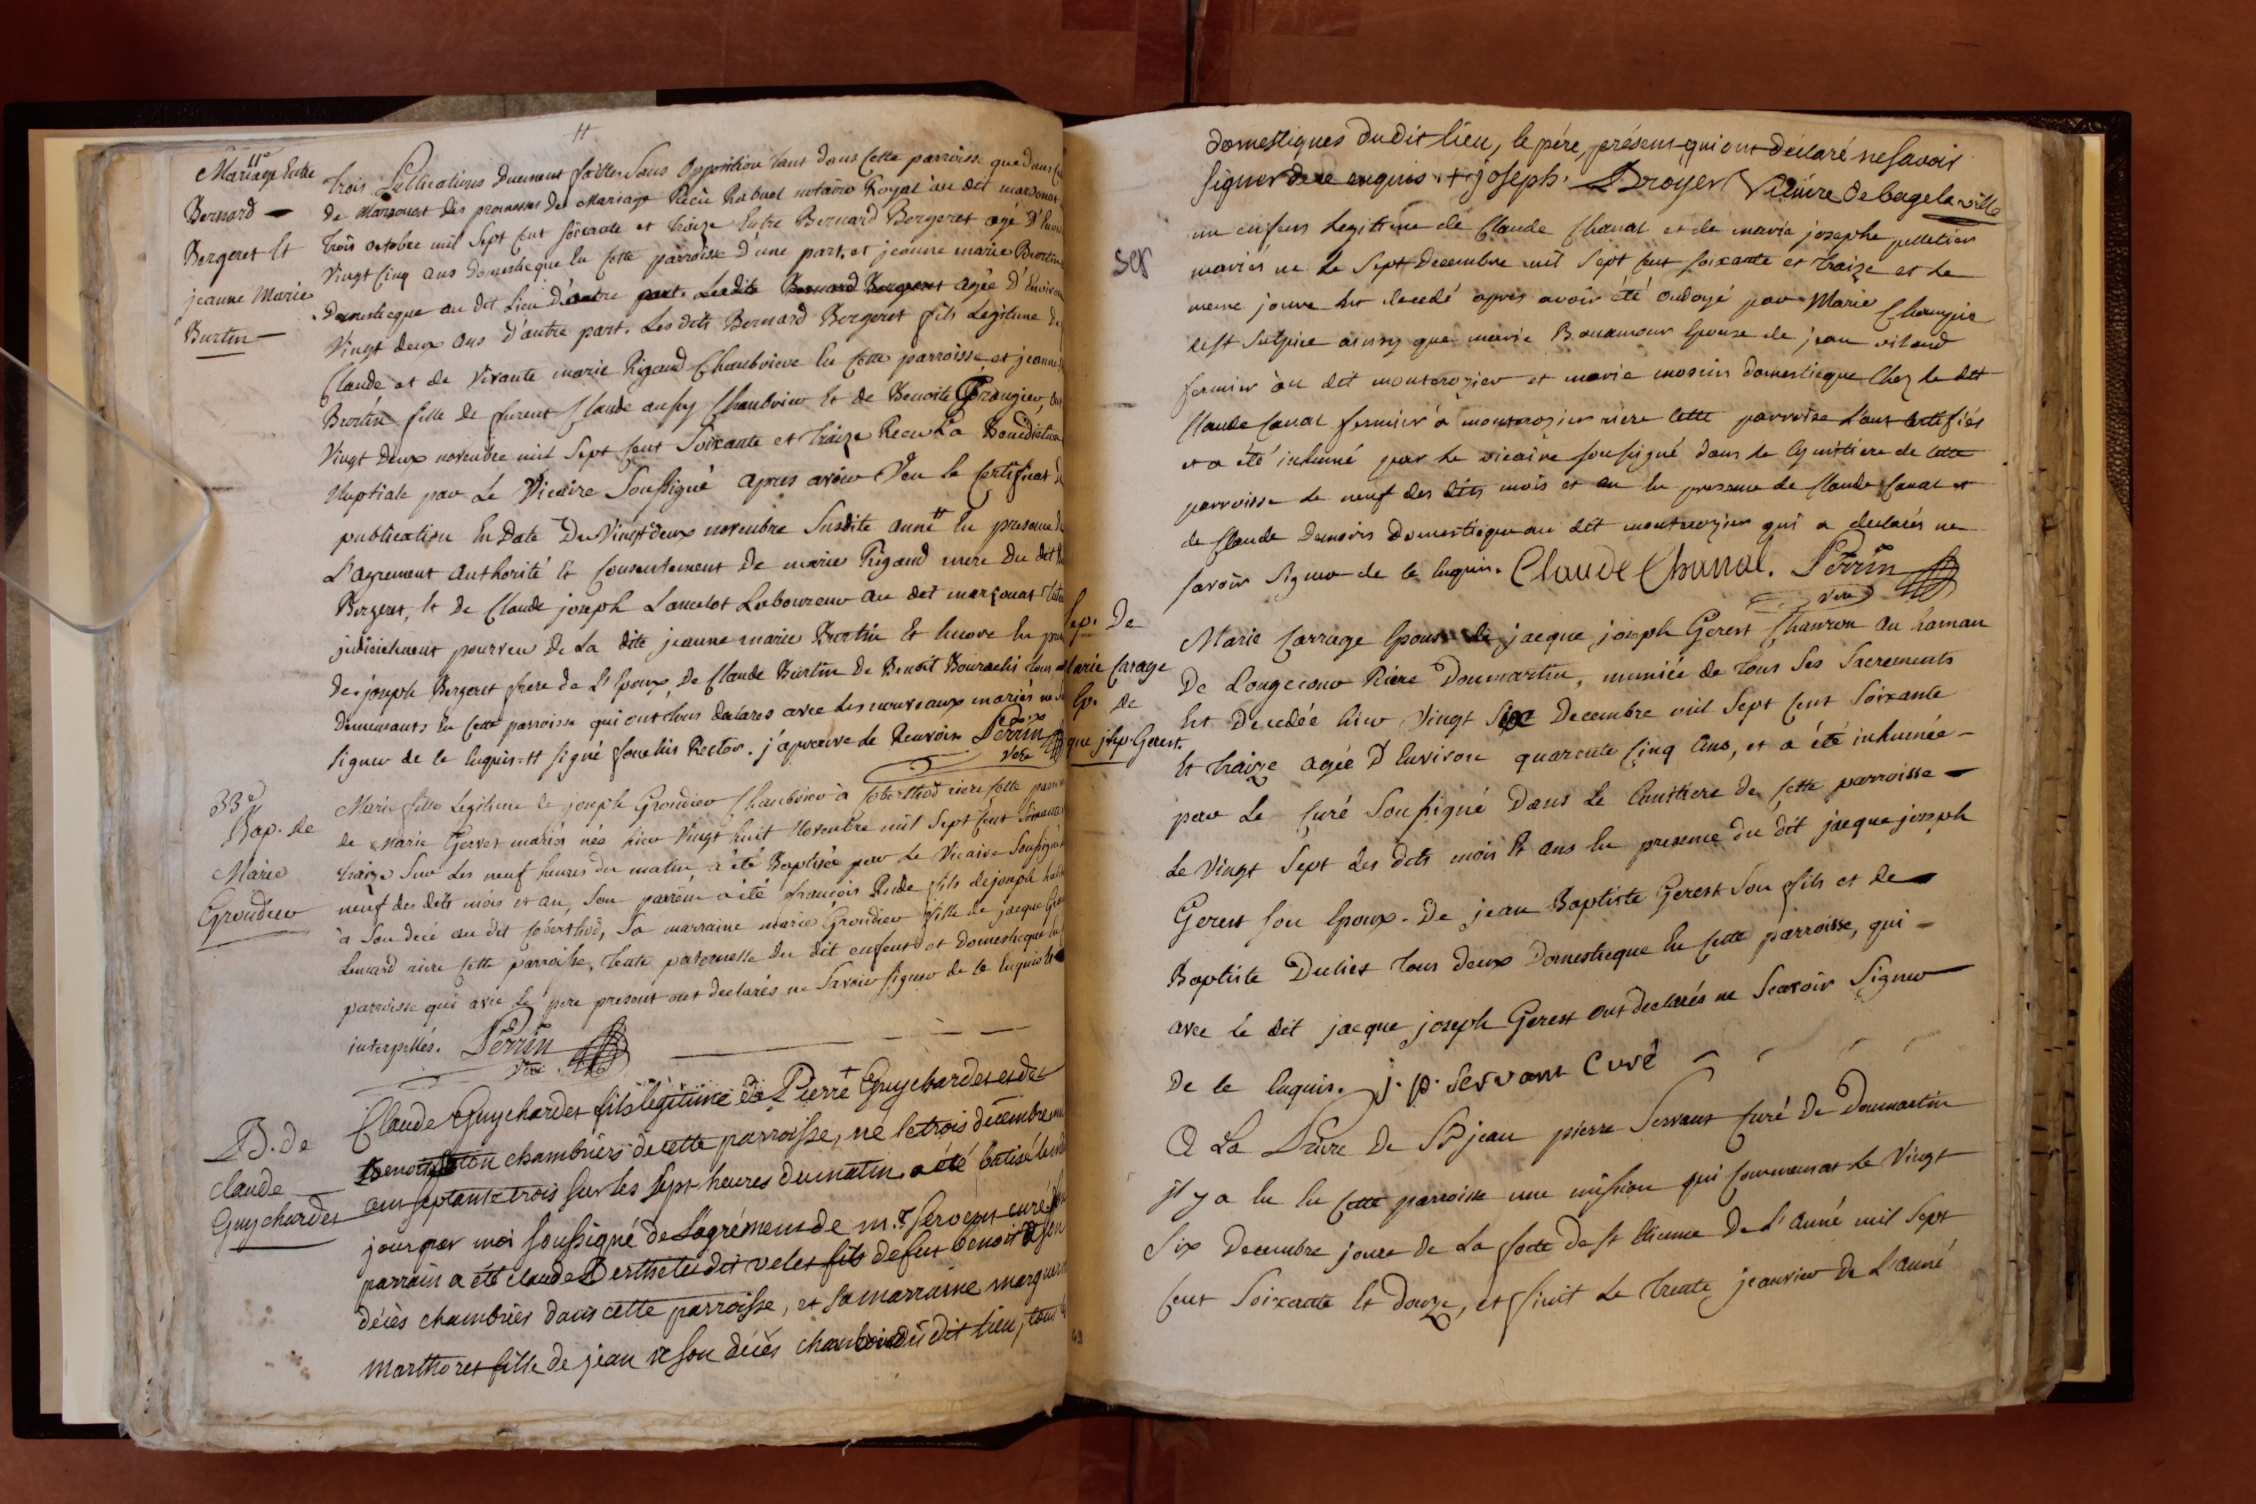 #
11e
Mariage Entre
Bernard —
Bergeret Et
jeanne Marie
Burtin —
trois Publications Duement faittes Sans Opposition tant dans Cette parroisse que dans
de Marsonat des promesses de Mariage Recu Rabuel notaire Royal au dit marsonat
trois octobre mil Sept Cent Soixante et traize Entre Bernard Bergeret agé D'Environ
Vingt Cinq ans domestique En Cette parroisse D'une part, et jeanne marie Burtin
Domestique au dit Lieu D'autre part. Lesdits Bernard Bergeret agée D'Environ
Vingt deux ans D'autre part. Les dits Bernard Bergeret fils Legitime de
Claude et de Vivante marie Rigaud Chambriere En Cette parroisse et jeanne
Burtin fille de furent Claude aussy Chambrier Et de Benoite
Vingt Deux novembre mil Sept Cent Soixante et traize Recu La Benediction
Nuptiale par Le Vicaire Soussigné apres avoir Veu le Certificat de
publication En Date Du Vingt Deux novembre Susdite année # En presence de
L'agrement authorité Et Consentement De marie Rigaud mere Du dit
Bergeret, Et de Claude joseph Lancelot Laboureur au det marsonat
judiciellement pourveu de La dite jeanne marie Burtin Et Encore En
de joseph Bergeret frere de L'Epoux, De Claude Burtin De Benoit Bourachi tous
Demeurants En Cette parroisse qui ont tous declares avec Les nouveaux mariés ne
Signer de ce Enquis. # Signé Rector. j'aprouve le Renvoix Perrin
Vire
33e
Bap. de
Marie
Grondier
Marie fille Legitime de joseph Grondier Chambrier à Coberthod riere Cette
de Marie Gerret mariés née hier Vingt huit Novembre mil Sept Cent Soixante
traize Sur Les neuf heures du matin, a été Baptisée par Le Vicaire Soussigné
neuf des dits mois et an, Son parrein a été françois Rude fils de joseph
à Son decé au dit Coberthod, Sa marraine marie Grondier fille de jacque
Lemard riere Cette parroisse, tente paternelle Du dit enfent et domestique
parroisse qui avec Le pere present ont declarés ne Savoir Signer de ce Enquis Et
interpellés. Perrin
Vire
B. de
claude
Guychardet
Claude Guychardet fils légitime de Pierre Guychardet et de
chambriers de cette parroisse, né le trois décembre
an septante trois sur les sept heures du matin a été batisé
jour par moi soussigné de l'agrément de m.r servant curé
parrain a été claude Berthelet dit velet fils de fut benoit
décès chambrier dans cette parroisse, et sa marraine
marthoret fille de jean a son décès dudit lieu, tous
domestiques dudit lieu, le pére, présent, qui ont déclaré ne savoir
signer de ce enquis + joseph. Broyer Vicaire de bage la ville
sep
un enfens Legittime de Claude Chanal et de marie josephe pelletier
mariés ne Le Sept Decembre mil Sept Cent Soixante et traize et Le
meme joure Est decedé apres avoir été ondoyé par Marie
de St Sulpice ainsy que marie Bonamour Epouse de jean vilaud
fermier au dit montrozier et marie domestique Chez le dit
Claude Canal fermier à montrozier riere Cette parroise L'ont Certifiés
et a été inhumé par Le vicaire Soussigné dans Le Cymittiere de Cette
parroisse Le neuf des dits mois et an En presence de Claude Canal et
de Claude Demoiris Domestique au dit montrozier qui a declarés ne
savoir signer de ce Enquis. Claude Chanal. Perrin
vire
Sep. De
Marie Carrage
Ep. de
que jsep. Gerest
Marie Carrage Epouse de jacque joseph Gerest au hamau
De Longecour Riere Donmartin, muniée de tous Ses Sacrements
Est Decedée hier Vingt Six Decembre mil Sept Cent Soixante
Et traize agée D'Environ quarente Cinq Ans, et a été inhumée —
par Le Curé Soussigné Dans Le Cimitiere de Cette parroisse —
Le Vingt Sept des dits mois Et ans En presence du dit jacque joseph
Gerest Son Epoux. De jean Baptiste Gerest Son fils et de
Baptiste tous deux Domestique En Cette parroisse, qui —
avec Le dit jacque joseph Gerest ont declarés ne Scavoir Signer —
De ce Enquis. j. p. servant Curé
A La Priere De Sr jean pierre Servant Curé De Donmartin
jl y a Eu En Cette parroisse une mission qui Commencat Le Vingt
Six Decembre joure de La fette De St Etienne De L'anné mil Sept
Cent Soixante Et douze, et finit Le trente jeanvier de L'anné